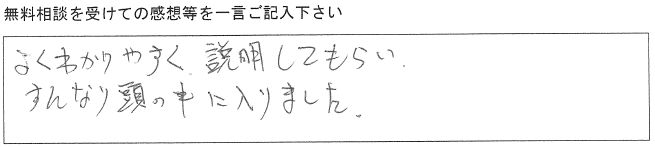 無料相談を受けての感想等を一言ご記入下さい
よくわかりやすく、説明してもらい、
すんなり頭の中に入りました。